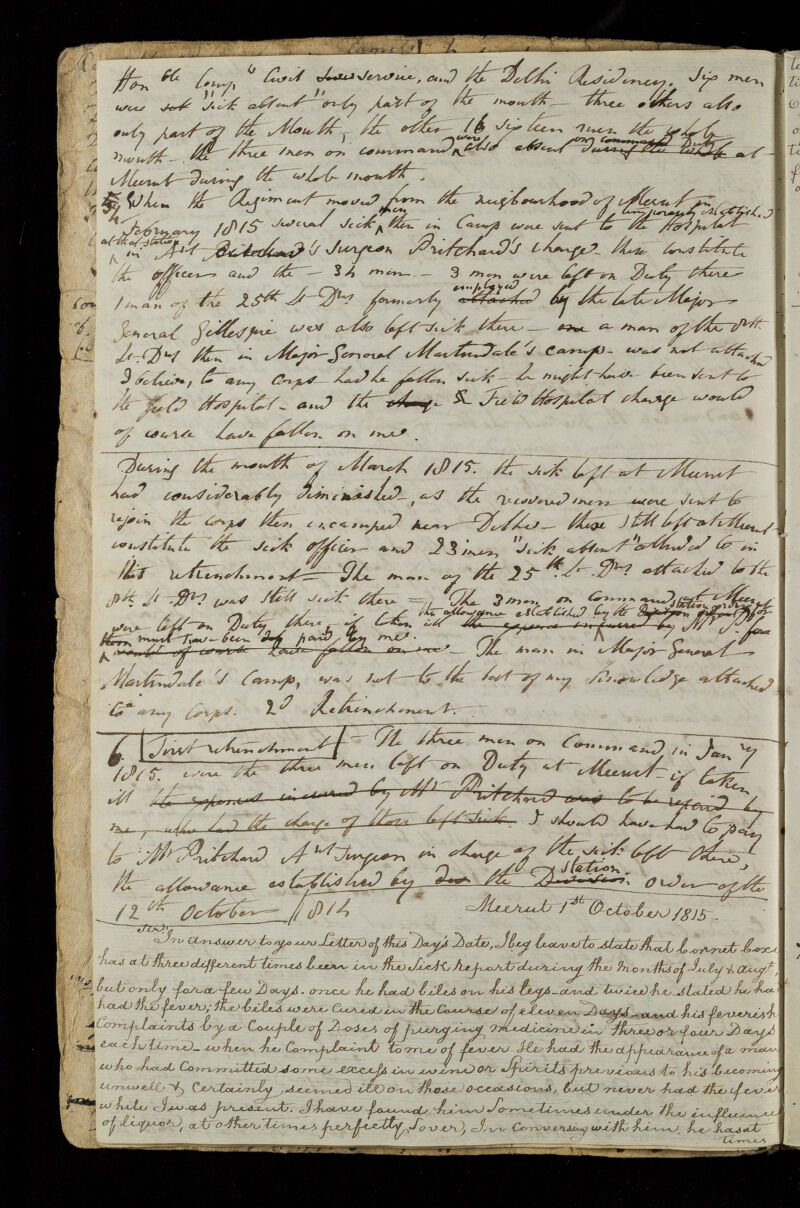 Hon ble Comp.s Civil service, and the Delhi Residency. Six men
were "sick absent" only part of the month – three others also
only part of the Month, the other 16 sixteen men the whole
month – the three men on command were also absent on Duty at
Meerut during the whole month.
5 When the Regiment moved from the neighbourhood of Meerut in
February 1815 several sick men then in Camp were sent to the temporarily established Hospital
at that station in Ast Surgeon Pritchard's charge – these constitute
the officer and the – 34 men. – 3 men were left on Duty there
1 man of the 25th Lt Drs formerly employed by the late Major
General Gillespie was also left sick there – a man of the 8th
Lt. Drs then in Major General Martindale's camp – was not attached
I believe, to any corps – had he fallen sick – he might have been sent to
the field Hospital – and the & Field Hospital charge would
of course have fallen on me.
During the month of March 1815. the sick left at Meerut
had considerably diminished, as the recovered men were sent to
rejoin the corps then encamped near Delhi – those still left at Meerut
constitute the sick officer and 23 men "sick absent" alluded to in
this retrenchment = The man of the 25th Lt. Drs attached to the
8th Lt Drs was still sick there = The 3 men on command at Meerut
were left on Duty there, if taken ill the allowance established by the station order for
them must have been paid by me. – The man in Major General
Martindale's Camp, was not to the best of my knowledge attached
to any Corps. 2d Retrenchment.
6. First retrenchment – The three men on Command in Jany
1815. were the three men left on Duty at Meerut – if taken
ill the expences incurred by Mr Pritchard was to be repaid by
me, who had the charge of those left sick. I should have had to pay
to Mr Pritchard Ast Surgeon in charge of the sick left there,
the allowance established by the station order of the
12th October 1814
Meerut 1st October 1815.
Sir,
In answer to your Letter of this Day's Date, I beg leave to state that Cornet Cox
has at three different times been in the Sick report during the months of July & Augt,
but only for a few Days. once he had biles on his legs – and twice he stated he had
had the fever; the biles were cured in the Course of eleven Days – and his feverish
Complaints by a Couple of Doses of purging medicine in three or four Days
each time – when he Complaint to me of fever He had the appearance of a man
who had Committed some excess in wine or Spirits previous to his becoming
unwell & Certainly seemed ill on those occasions, but never had the fever
while I was present. I have found him Sometimes under the influence
of liquor, at other times perfectly Sover, In Conversing with him he has at
times